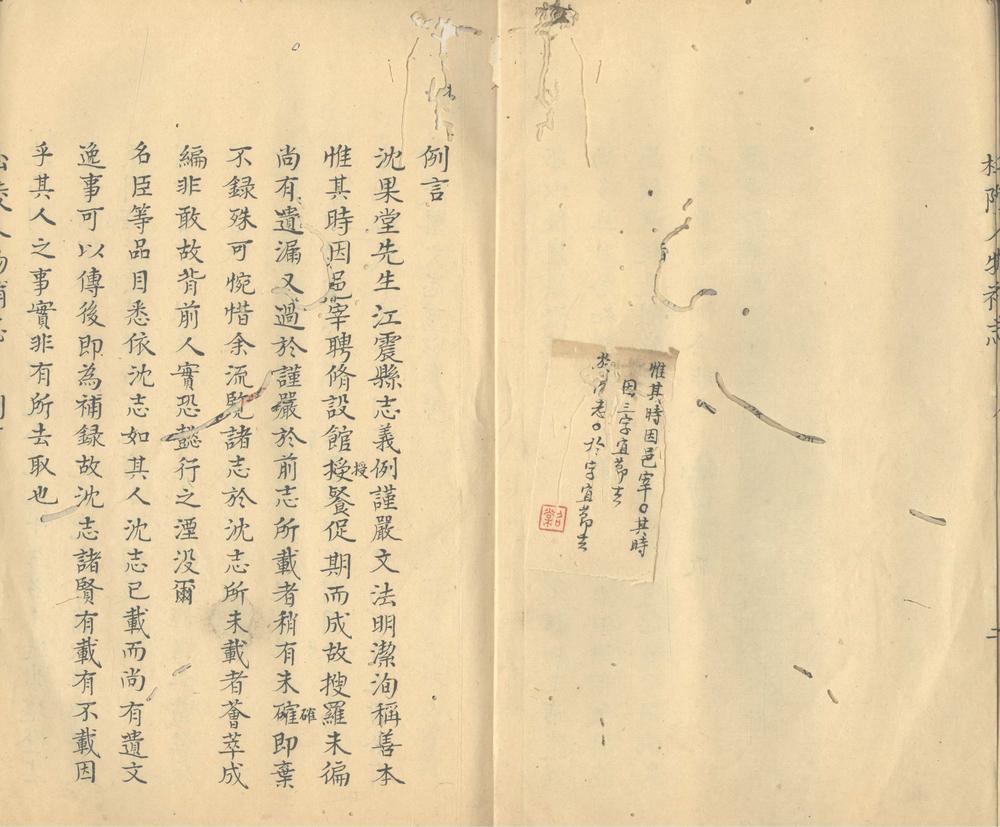 惟其時因邑宰〇其時
因三字宜節去
志〇於字宜節去
例言
沈果堂先生江震縣志義例謹嚴文法明潔洵稱善本
惟其時因邑宰聘脩設館授餐促期而成故搜羅未徧
授
尚有遺漏又過於謹嚴於前志所載者稍有未確即棄
確
不録殊可惋惜余流覽諸志於沈志所未載者薈萃成
編非敢故背前人實恐懿行之湮没爾
名臣等品目悉依沈志如其人沈志已載而尚有遺文
逸事可以傳後即為補録故沈志諸賢有載有不載因
乎其人之事實非有所去取也